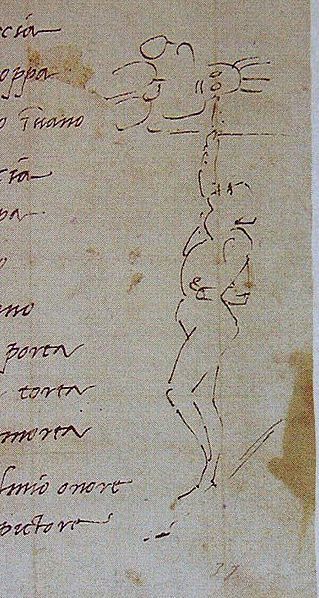 ccia
oppa
o īuano
cia
pa
o
ano
porta
torta
morta
lmio onore
pictore